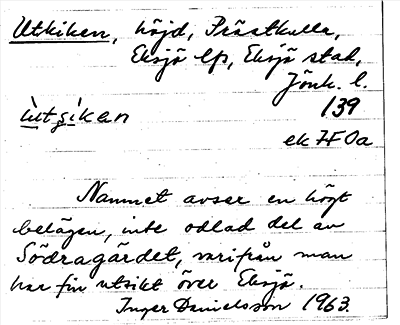 Utkiken, höjd, Prästkulla,
Eksjö lfs, Eksjö stad,
Jönk. l.
ùtsìkan 139
ek 7F 0a
Namnet avser en högt
belägen, inte odlad del av
Södragärdet, varifrån man
har fin utsikt över Eksjö.
Inger Danielsson 1963.